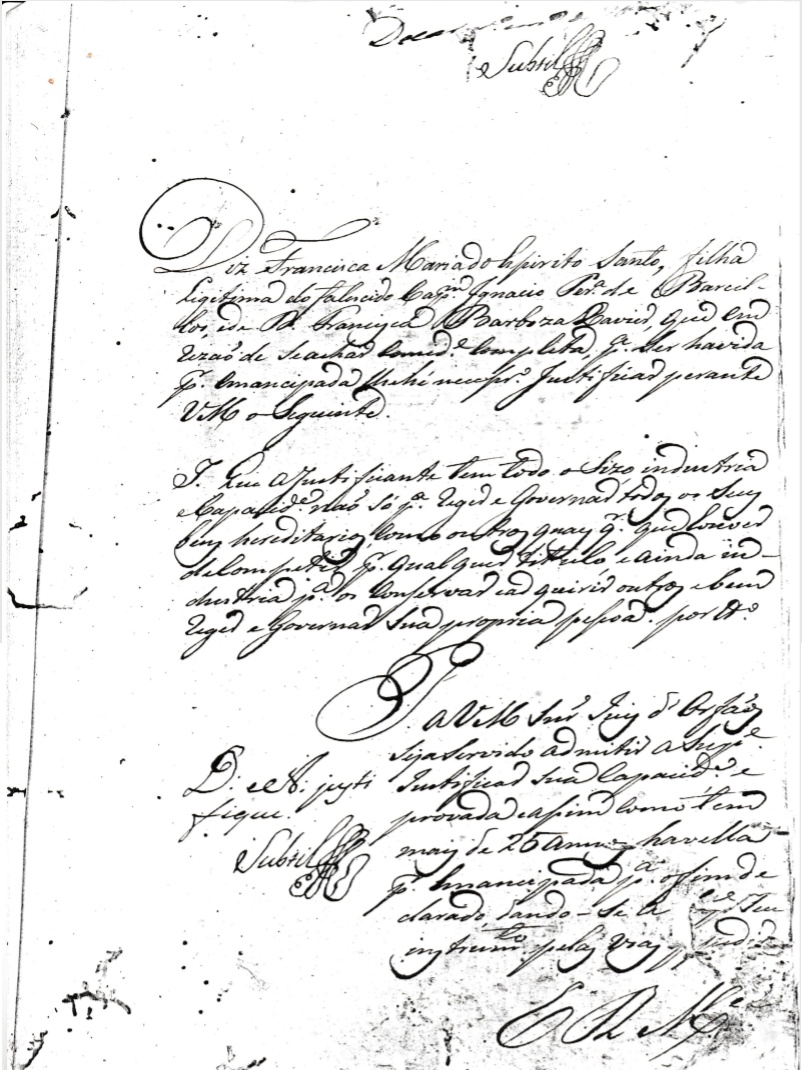 Subtil
Diz Francisca Maria do Espirito Santo, filha
Legitima do falecido Capm. Ignacio Perª. de Barcel-
los, e de D. Francisca Barboza Xavier, que em
rezaõ de se achar com id.e completa, pª. ser havida
pr. emancipada lhe hé necessrº. Justificar perante
VM o Seguinte.
P. Que a Justificante tem todo o Sizo industria
e Capacid.e naõ só pª. reger e Governar todos os Seus
bens hereditarios, como outros quaes qr. que houver
de Competir pr. qualquer titulo e ainda in-
dustria pª. os Conservar e adquirir outros e bem
reger e Governar Sua propria pessoa. por
P. a VM Snr. Juiz de Orfaõs
seja servido admitir a Supe.
Justificar sua Capacid.e e
provada assim como tem
mais de 25 annos havella
pr. emancipada pª. o fim de
clarado, dando-se lhe
instrumto. pelas vias
D. e A. justi
fique.
Subtil
E R Mce